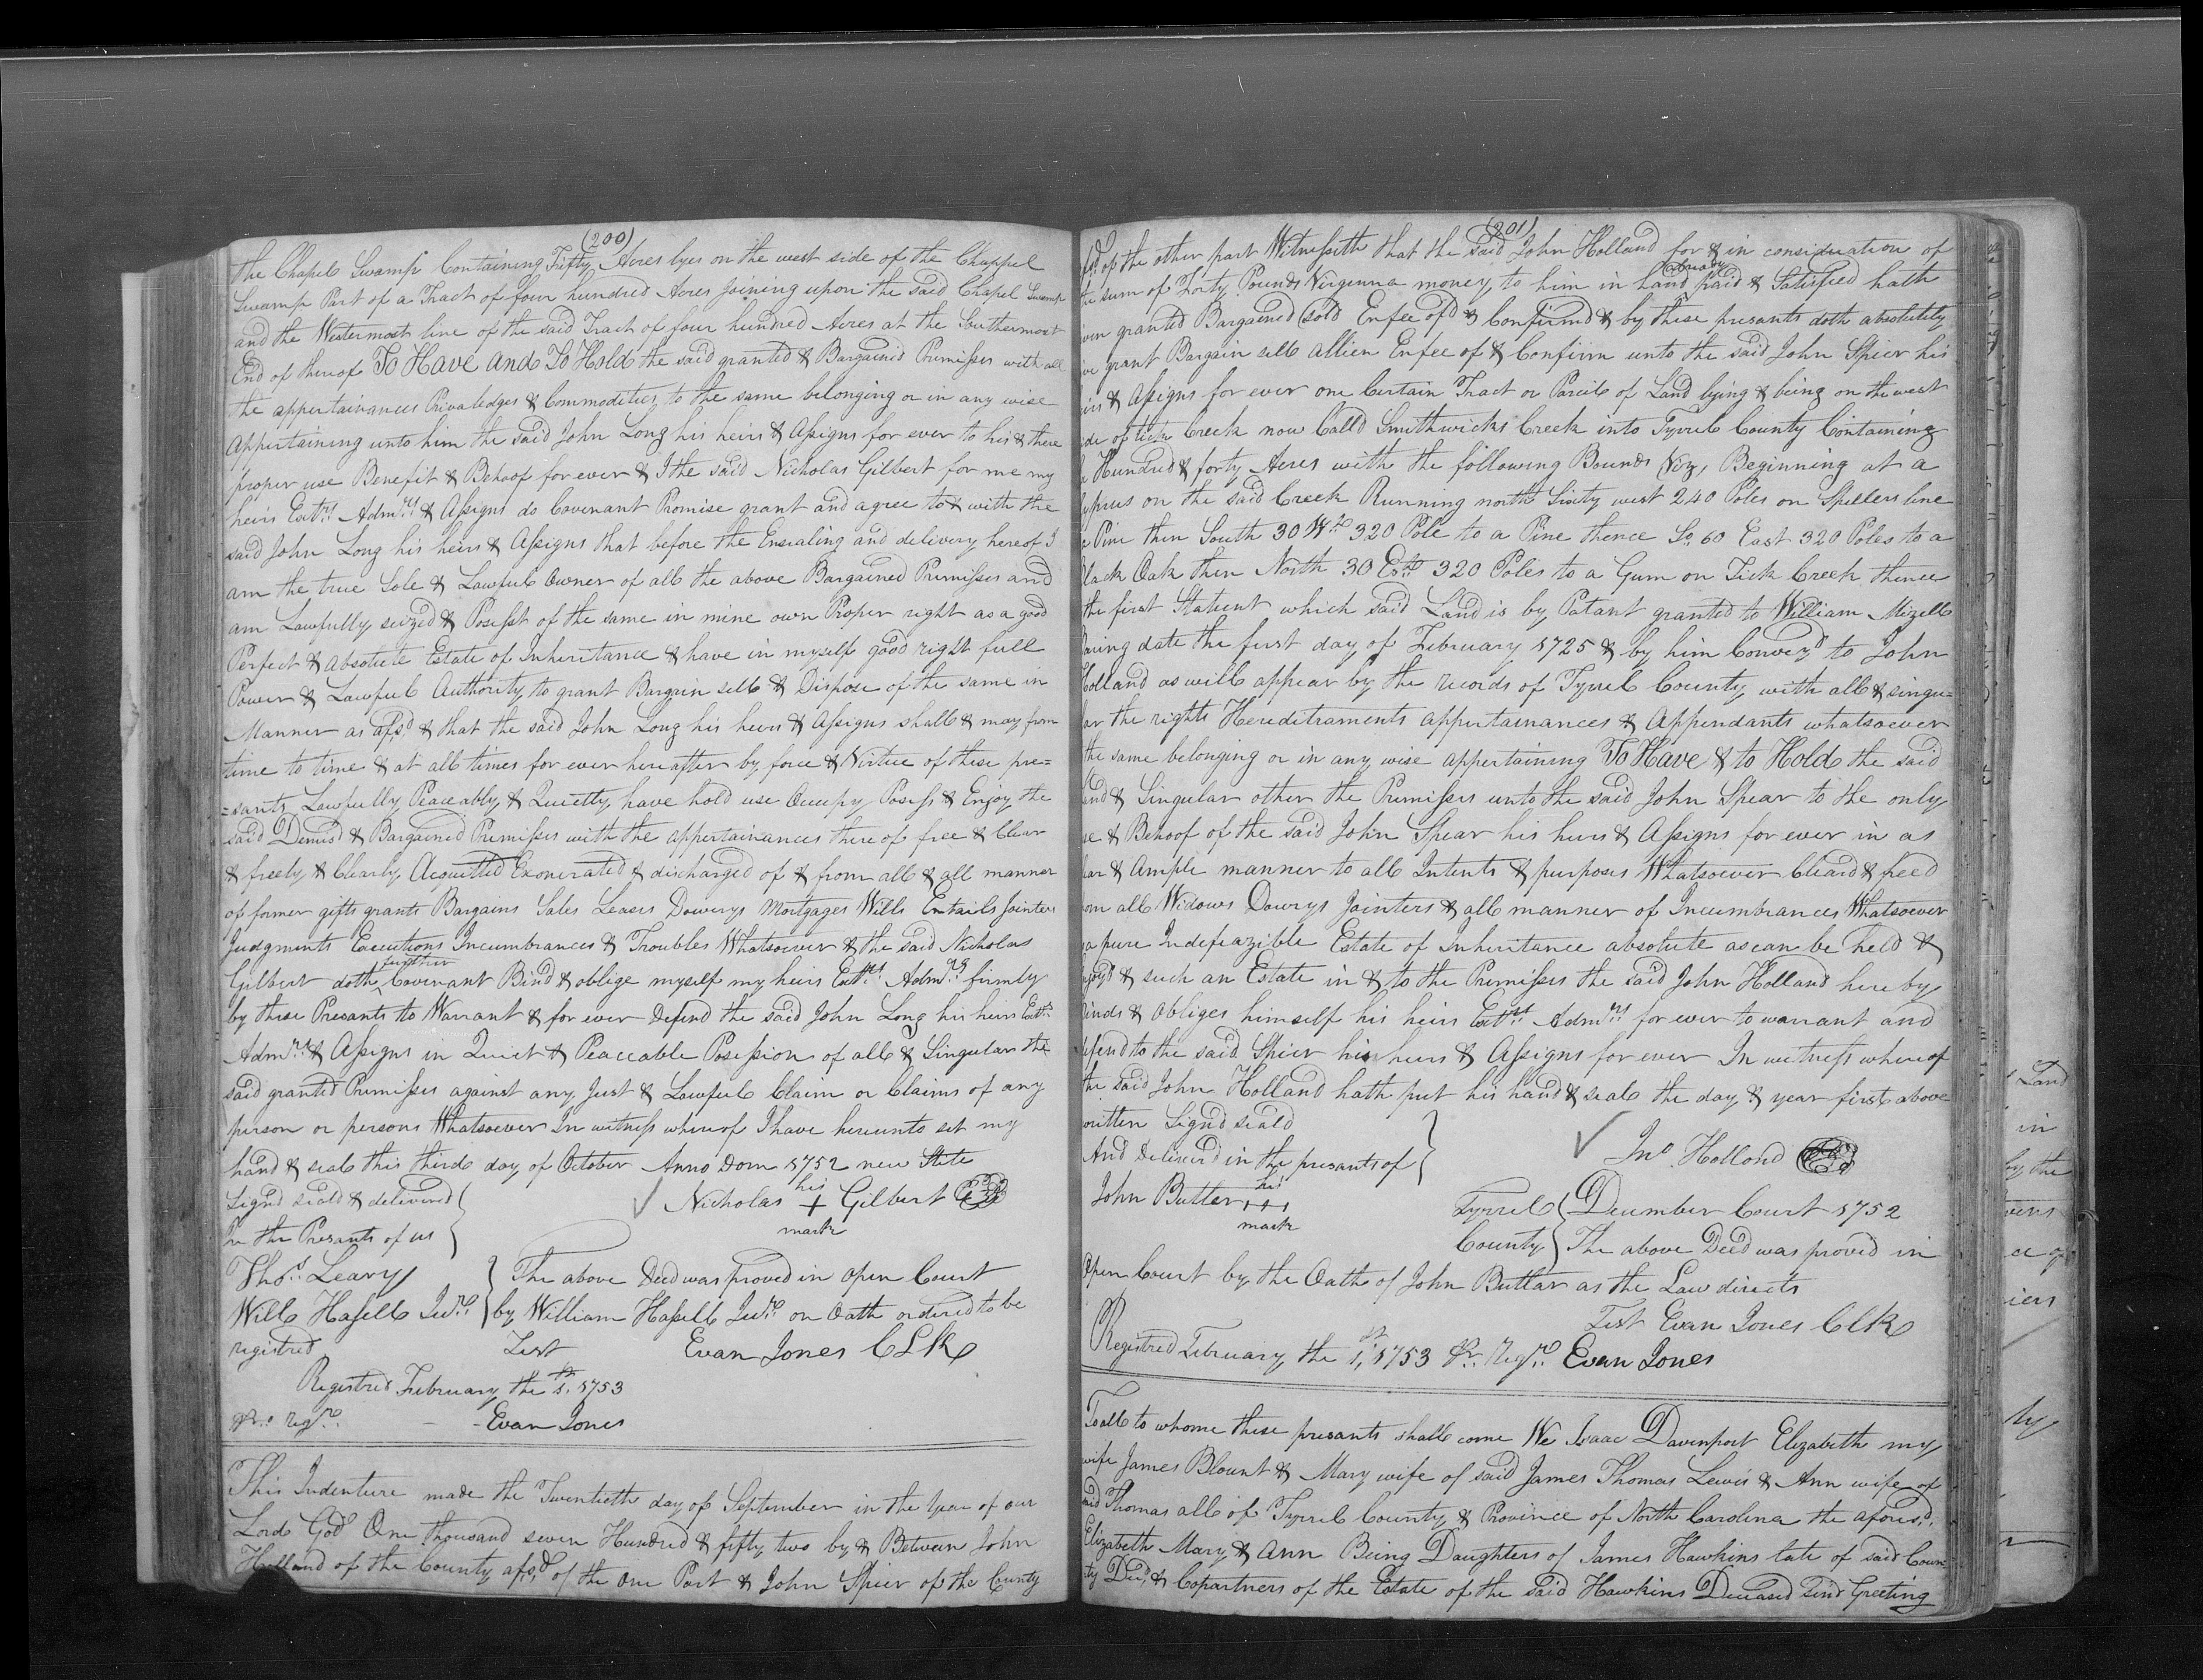 (200)
the Chapel Swamp Containing Fifty Acres lyes on the west side of the Chappel
Swamp Part of a Tract of four hundred Acres Joining upon the said Chapel Swamp
and the Westermost line of the said Tract of four hundred Acres at the Southermost
End of thereof To Have and To Hold the said granted & Bargained Premisses with all
the appertainances Privaledges & Commodities to the same belonging or in any wise
Appertaining unto him the said John Long his heirs & Assigns for ever to his & there
proper use Benefit & Behoof for ever & I the said Nicholas Gilbert for me my
heirs Extrs. Admrs. & Assigns do Covenant Promise grant and agree to & with the
said John Long his heirs & Assigns that before the Ensealing and delivery hereof I
am the true Sole & Lawful Owner of all the above Bargained Premisses and
am Lawfully seized & Posesst of the same in mine own Proper right as a good
Perfect & absolute Estate of Inheritance & have in myself good right full
Power & Lawful Authority to grant Bargain sell & Dispose of the same in
Manner as afsd. & that the said John Long his heirs & Assigns shall & may from
time to time & at all times for ever hereafter by force & Virtue of these pre=
=sants Lawfully Peaceably & Quietly have hold use Occupy Posess & Enjoy the
said Demisd & Bargained Premisses with the appertainances thereof free & Clear
& freely & Clearly Acquitted Exonerated & discharged of & from all & all manner
of former gifts grants Bargains Sales Leases Dowerys Mortgages Wills Entails Jointers
Judgments Executions Incumbrances & Troubles Whatsoever & the said Nicholas
Gilbert doth further Covenant Bind & oblige myself my heirs Extrs. Admrs. firmly
by these Presants to Warrant & for ever Defend the said John Long his heirs Extrs
Admrs. & Assigns in Quiet & Peaceable Posession of all & Singular the
said granted Premisses against any Just & Lawful Claim or Claims of any
person or persons Whatsoever In witness whereof I have hereunto set my
hand & seal this third day of October Anno Dom 1752 new Stile
Signd seald & delivered
In the Presants of us
Nicholas his + mark Gilbert
Thos. Leary
Will Hasell Junr.
The above Deed was proved in open Court
by William Hasell Junr. on Oath ordered to be
registred
Test Evan Jones CLK
Registred February the 1st. 1753
Pr. Regr. - - Evan Jones
This Indenture made the Twentieth day of September in the Year of our
Lord God One thousand seven Hundred & fifty two by & Between John
Holland of the County afsd. of the One Part & John Spier of the County
(201)
of the other part Witnesseth that the said John Holland for & in consideration of
the sum of Forty Pounds Virgenna money to him in hand already paid & Satisfied hath
granted Bargained sold Enfeeofd & Confirmd & by these presants doth absolutely
grant Bargain sell allien Enfeeof & Confirm unto the said John Spier his
& Assigns for ever one Certain Tract or Parcel of Land lying & being on the west
of Creek now Calld Smithwicks Creek into Tyrrel County Containing
Hundred & forty Acres with the following Bounds Viz, Beginning at a
on the said Creek Running north Sixty west 240 Poles on Spellers line
Pine then South 30 Wt. 320 Pole to a Pine thence So. 60 East 320 Poles to a
lack Oak then North 30 Est. 320 Poles to a Gum on Tick Creek thence
the first Statient which said Land is by Patant granted to William Mizell
aring date the first day of February 1725 & by him Conveyd to John
Holland as will appear by the records of Tyrrel County with all & singu=
lar the rights Hereditraments appertainances & Appendants whatsoever
the same belonging or in any wise appertaining To Have & to Hold the said
and & Singular other the Premisses unto the said John Spear to the only
& Behoof of the said John Spear his heirs & Assigns for ever in as
& Ample manner to all Intents & purposes Whatsoever Cleard & freed
om all Widows Dowrys Jointers & all manner of Incumbrances Whatsoever
a pure Indefeazible Estate of Inheritance absolute as can be held &
& such an Estate in & to the Premisses the said John Holland here by
inds & obliges himself his heirs Extrs. Admrs. for ever to warrant and
efend to the said Spier his heirs & Assigns for ever In witness whereof
the said John Holland hath put his hand & seal the day & year first above
written Signd seald
And delivered in the presants of
Jno. Holland
John Butler his +++ mark
Tyrrel County
December Court 1752
The above Deed was proved in
Open Court by the Oath of John Butlar as the Law directs
Test Evan Jones CLK
Registred February the 1st, 1753 Pr. Regr. Evan Jones
To all to whome these presants shall come We Isaac Davenport Elizabeth my
wife James Blount & Mary wife of said James Thomas Lewis & Ann wife of
said Thomas all of Tyrrel County & Province of North Carolina the aforesd.
Elizabeth Mary & Ann Being Daughters of James Hawkins late of said Coun
ty Decd. & Copartners of the Estate of the said Hawkins Deceased Send Greeting
Land
in
by the